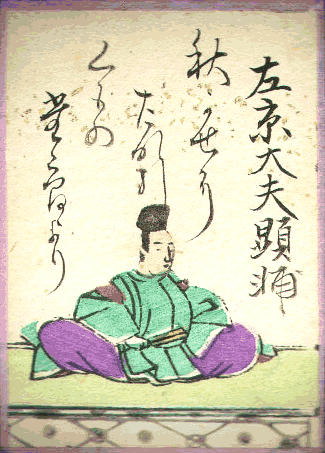 左京大夫顕輔
秋かせに
たなひく
くもの
堂えまより